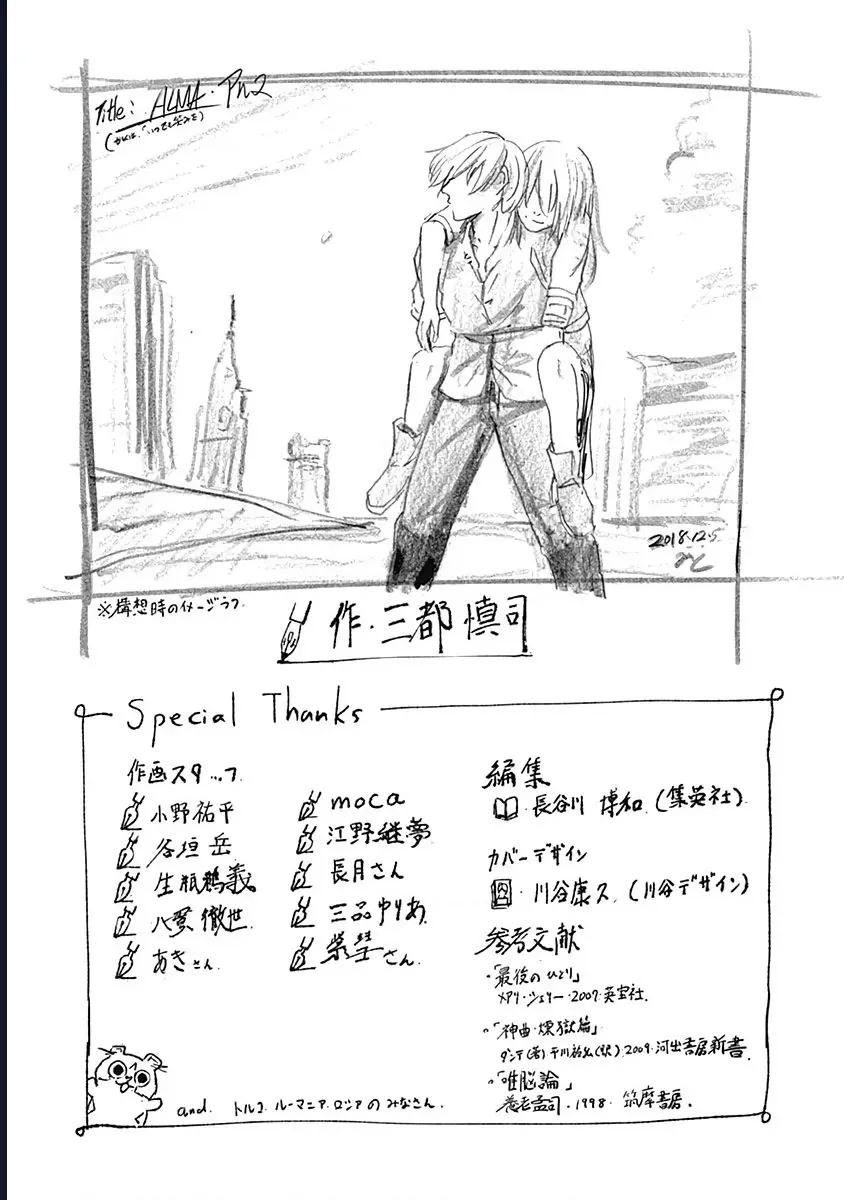 Title: ALMA. Pn2
2018.12.5
※構想時のイメージラフ
作・三都慎司
Special Thanks
作画スタッフ
小野祐平
谷垣岳
生瓶鵜義
八翠徹世
あきさん
moca
江野継夢
長月さん
三品ゆりあ
さん
編集
長谷川 博和 (集英社)
カバーデザイン
川谷康久 (川谷デザイン)
参考文献
・「最後のひとり」
メアリ・シェリー・2007・英宝社.
・「神曲・煉獄篇」
ダンテ(著)平川祐弘(訳)・2009・河出書房新書.
・「唯脳論」
養老孟司・1998・筑摩書房.
and. トルコ.ルーマニア.ロシアのみなさん.